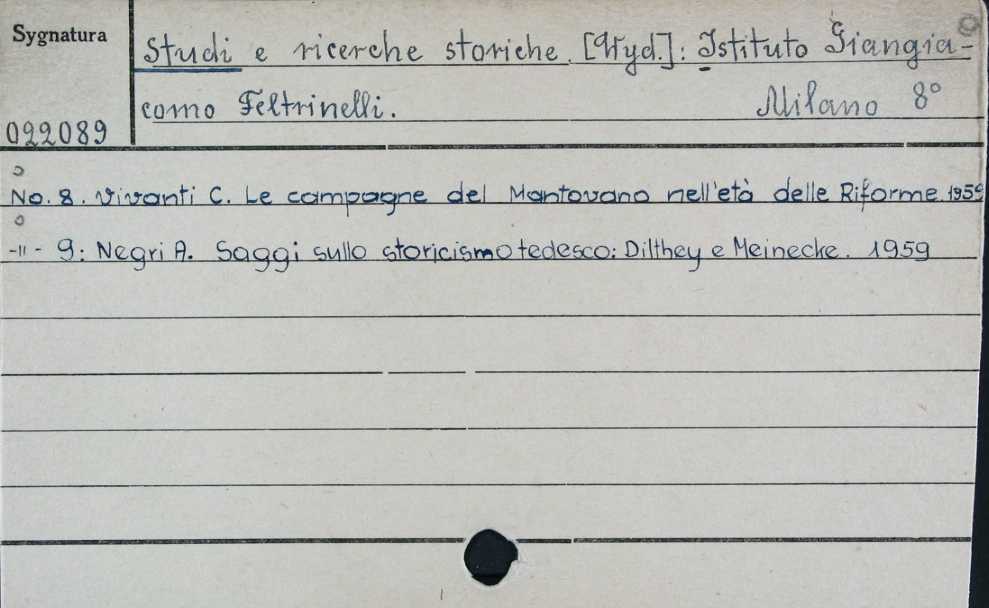 Sygnatura
Studi e ricerche storiche. [Wyd.]: Istituto Giangia-
como Feltrinelli. Milano 8°
022089
No. 8. Vivanti C. Le campagne del Mantovano nell'età delle Riforme. 1959
-11- 9: Negri A. Saggi sullo storicismo tedesco: Dilthey e Meinecke. 1959